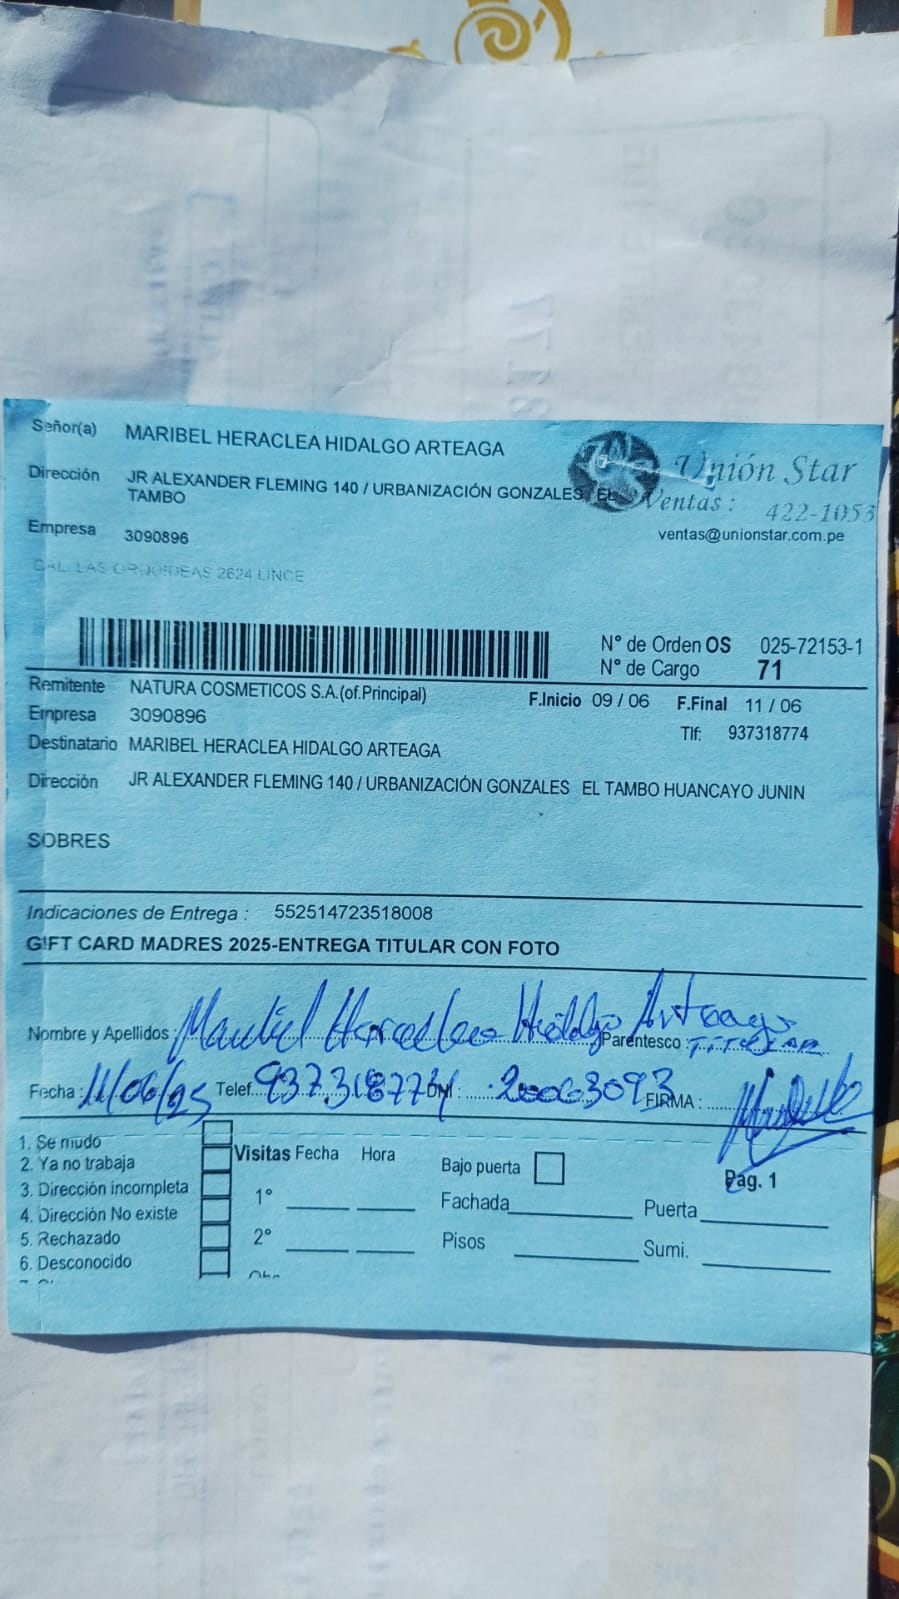 Señor(a) MARIBEL HERACLEA HIDALGO ARTEAGA
Dirección JR ALEXANDER FLEMING 140 / URBANIZACIÓN GONZALES EL
TAMBO
Unión Star
Ventas : 422-1053
ventas@unionstar.com.pe
Empresa 3090896
CAL. LAS ORQUIDEAS 2624 LINCE
N° de Orden OS 025-72153-1
N° de Cargo 71
Remitente NATURA COSMETICOS S.A.(of.Principal)
F.Inicio 09 / 06 F.Final 11 / 06
Empresa 3090896
Tlf: 937318774
Destinatario MARIBEL HERACLEA HIDALGO ARTEAGA
Dirección JR ALEXANDER FLEMING 140 / URBANIZACIÓN GONZALES EL TAMBO HUANCAYO JUNIN
SOBRES
Indicaciones de Entrega : 552514723518008
GIFT CARD MADRES 2025-ENTREGA TITULAR CON FOTO
Nombre y Apellidos : Maribel Heraclea Hidalgo Arteaga Parentesco : TITULAR
Fecha : 11/06/25 Telef. 937318774 DNI : 20063093 FIRMA :
1. Se mudo
2. Ya no trabaja
3. Dirección incompleta
4. Dirección No existe
5. Rechazado
6. Desconocido
Visitas Fecha Hora
1°
2°
Bajo puerta
Pag. 1
Fachada Puerta
Pisos Sumi.